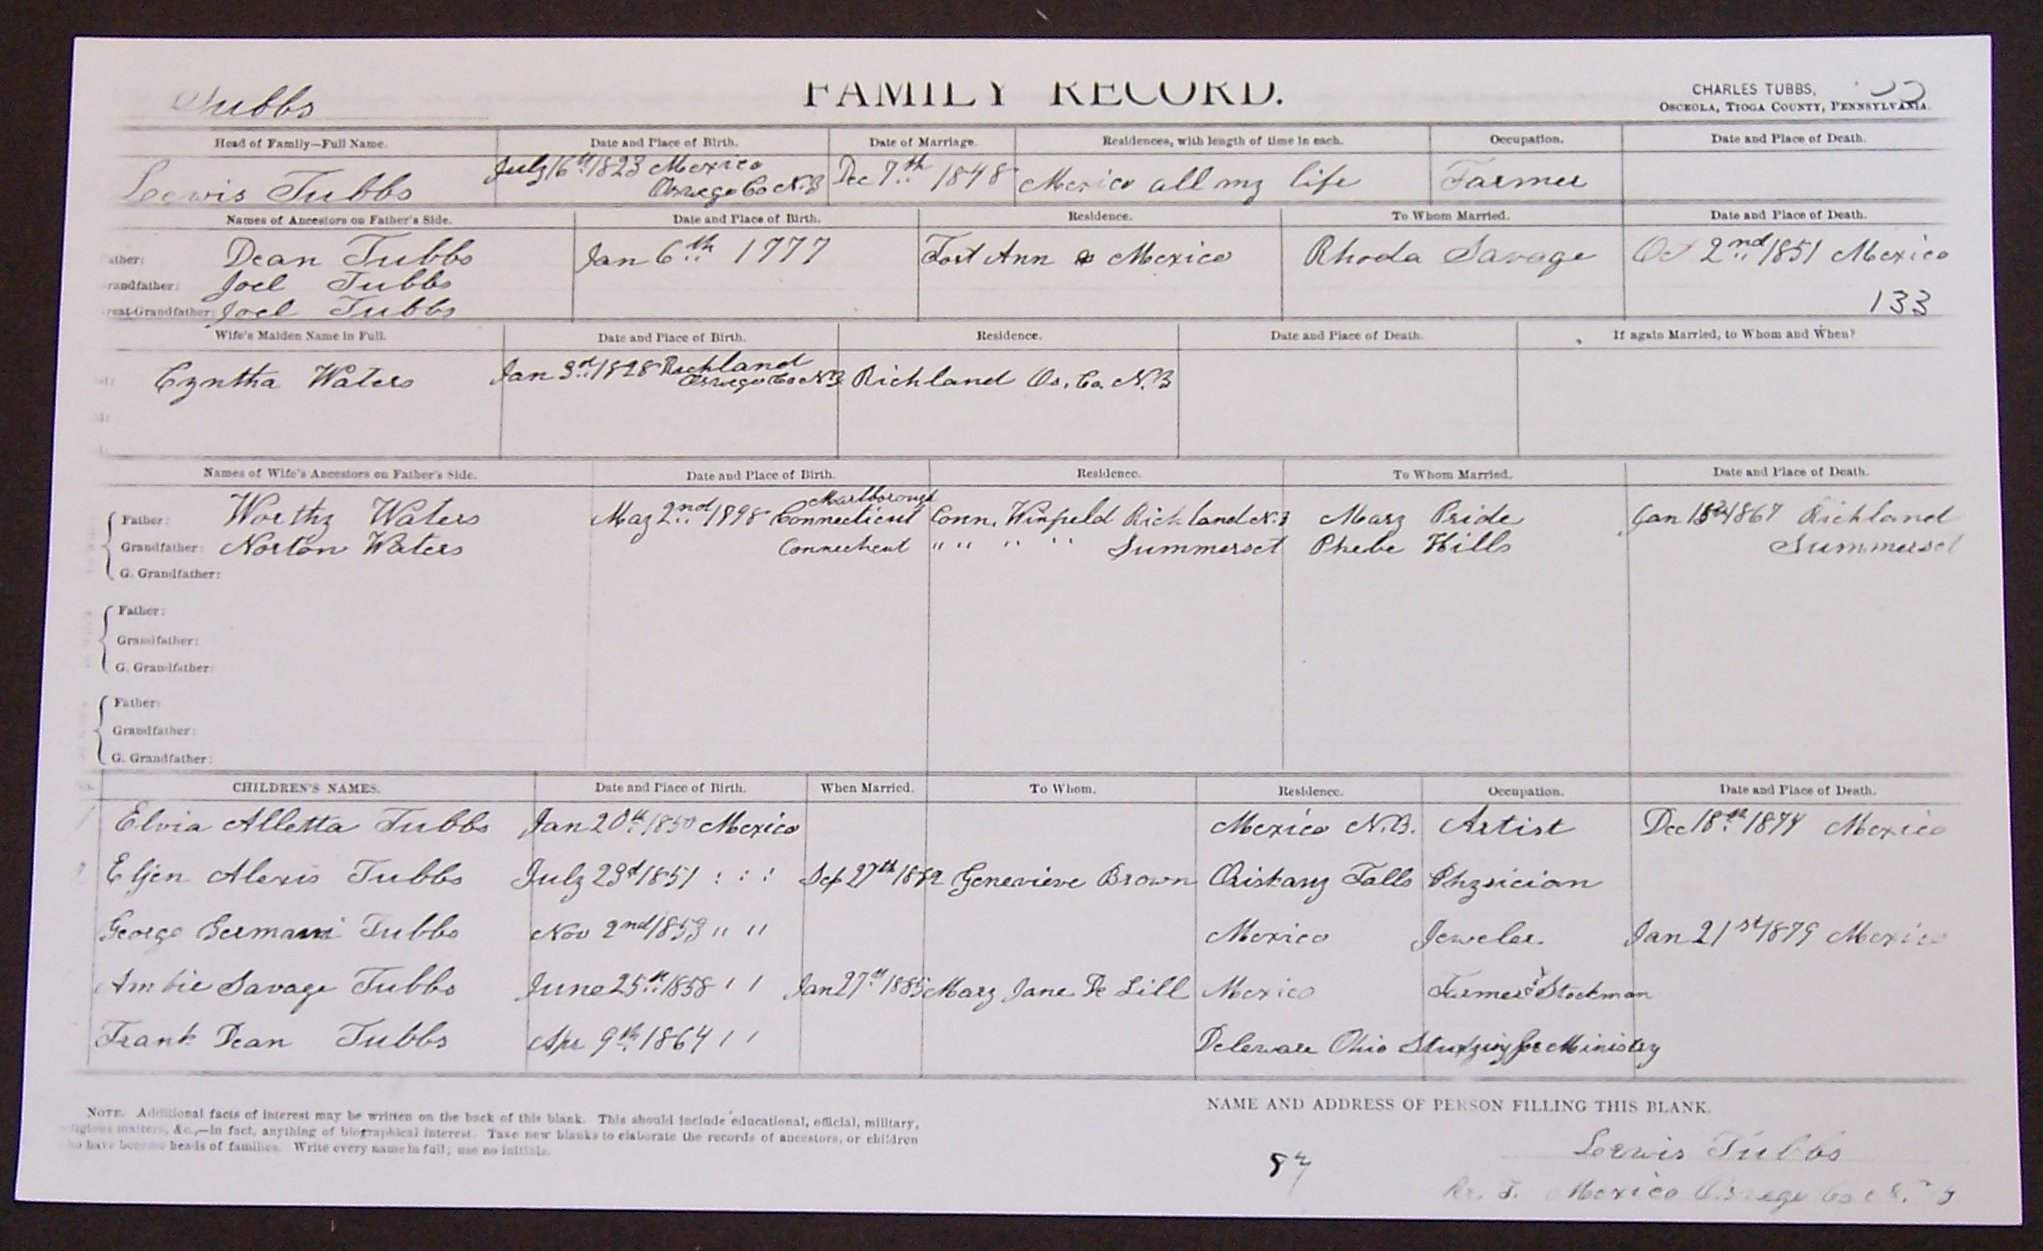 Tubbs
FAMILY RECORD.
CHARLES TUBBS,
OSCEOLA, TIOGA COUNTY, PENNSYLVANIA.
Head of Family—Full Name. Date and Place of Birth. Date of Marriage. Residences, with length of time in each. Occupation. Date and Place of Death.
Lewis Tubbs July 16th 1823 Mexico Oswego Co N.Y Dec 7th 1848 Mexico all my life Farmer
Names of Ancestors on Father's Side. Date and Place of Birth. Residence. To Whom Married. Date and Place of Death.
ather: Dean Tubbs Jan 6th 1777 Fort Ann & Mexico Rhoda Savage Oct 2nd 1851 Mexico
randfather: Joel Tubbs
reat-Grandfather: Joel Tubbs 133
Wife's Maiden Name in Full. Date and Place of Birth. Residence. Date and Place of Death. If again Married, to Whom and When?
Cyntha Waters Jan 3rd 1828 Richland Oswego Co N.Y Richland Os. Co. N.Y
Names of Wife's Ancestors on Father's Side. Date and Place of Birth. Residence. To Whom Married. Date and Place of Death.
Father: Worthy Waters May 2nd 1798 Marlborough Connecticut Conn. Winfield Richland N.Y Mary Pride Jan 1867 Richland
Grandfather: Norton Waters Connecticut " " " " Summerset Phebe Hills Summerset
G. Grandfather:
Father:
Grandfather:
G. Grandfather:
Father:
Grandfather:
G. Grandfather:
CHILDREN'S NAMES. Date and Place of Birth. When Married. To Whom. Residence. Occupation. Date and Place of Death.
Elvia Alletta Tubbs Jan 20th 1850 Mexico Mexico N.Y. Artist Dec 18th 1874 Mexico
Eljen Alexis Tubbs July 23d 1851 : : : Sep 27th 1882 Genevieve Brown Oriskany Falls Physician
George Germani Tubbs Nov 2nd 1853 " " Mexico Jeweler. Jan 21st 1879 Mexico
Ambie Savage Tubbs June 25th 1858 " Jan 27th 1885 Mary Jane De Lill Mexico Farmer & Stockman
Frank Dean Tubbs Apr 9th 1864 " Deleware Ohio Studying for Ministry
NOTE. Additional facts of interest may be written on the back of this blank. This should include educational, official, military,
ligious matters, &c.,—in fact, anything of biographical interest. Take new blanks to elaborate the records of ancestors, or children
ho have become heads of families. Write every name in full; use no initials.
NAME AND ADDRESS OF PERSON FILLING THIS BLANK.
Lewis Tubbs
Mexico Oswego Co N. Y
87